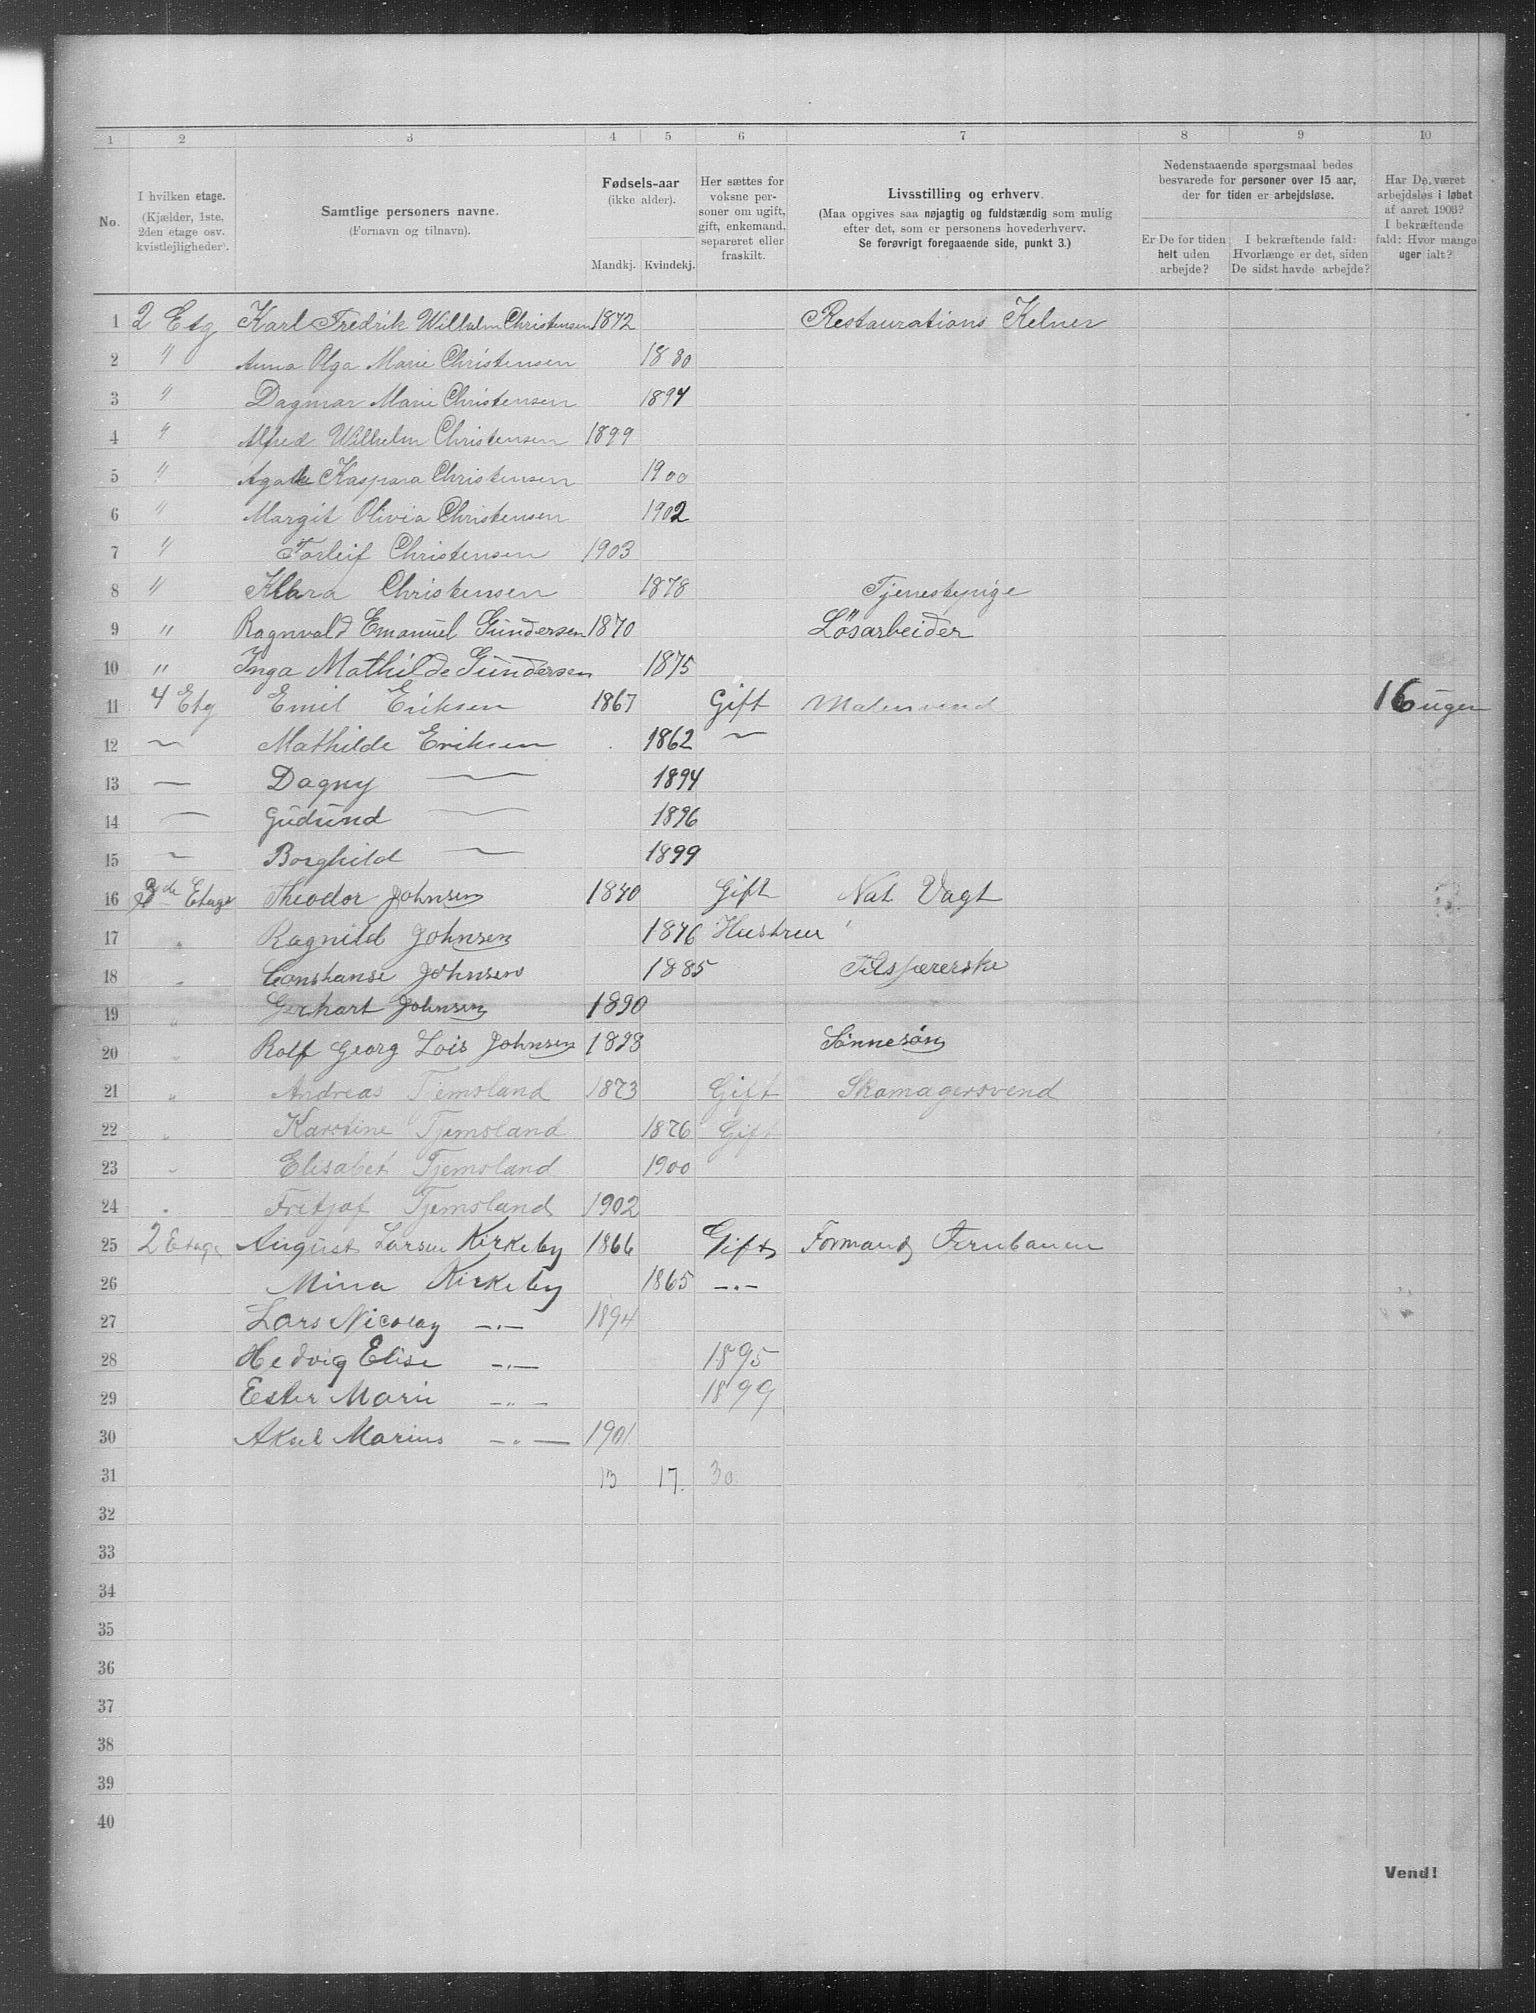 1 2 3 4 5 6 7 8 9 10
No.
I hvilken etage.
(Kjælder, 1ste,
2den etage osv.
kvistlejligheder).
Samtlige personers navne.
(Fornavn og tilnavn).
Fødsels-aar
(ikke alder).
Mandkj. Kvindekj.
Her sættes for
voksne per-
soner om ugift,
gift, enkemand,
separeret eller
fraskilt.
Livsstilling og erhverv.
(Maa opgives saa nøjagtig og fuldstændig som mulig
efter det, som er personens hovederhverv.
Se forøvrigt foregaaende side, punkt 3.)
Nedenstaaende spørgsmaal bedes
besvarede for personer over 15 aar,
der for tiden er arbejdsløse.
Er De for tiden
helt uden
arbejde?
I bekræftende fald:
Hvorlænge er det, siden
De sidst havde arbejde?
Har De været
arbejdsløs i løbet
af aaret 1903?
I bekræftende
fald: Hvor mange
uger ialt?
1 2 Etg Karl Fredrik Wilhelm Christensen 1872 Restaurations Kelner
2 " Anna Olga Marie Christensen 1880
3 " Dagmar Marie Christensen 1897
4 " Alfred Wilhelm Christensen 1899
5 " Kaspara Christensen 1900
6 " Margit Olivia Christensen 1902
7 " Torleif Christensen 1903
8 " Klara Christensen 1878 Tjenestepige
9 " Ragnvald Emanuel Gundersen 1870 Løsarbeider
10 " Inga Mathilde Gundersen 1875
11 4 Etg Emil Eriksen 1867 Gift Malersvend 16 uger
12 — Mathilde Eriksen 1862 —
13 — Dagny — 1894
14 — Gudund — 1896
15 — Borghild — 1899
16 3de Etage Theodor Johnsen 1840 Gift Nat Vagt
17 " Ragnild Johnsen 1846 Hustru
18 " Constanse Johnsen 1885
19 " Gerhart Johnsen 1890
20 " Rolf Georg Lois Johnsen 1898 Sønnesøn
21 " Andreas Tjemsland 1873 Gift Skomagersvend
22 " Karoline Tjemsland 1876 Gift
23 " Elisabet Tjemsland 1900
24 " Fritjof Tjemsland 1902
25 2 Etage August Larsen Kirkeby 1866 Gift Formand Jernbanen
26 Mina Kirkeby 1865 —"—
27 Lars Nicolay —"— 1894
28 Hedvig Elise —"— 1895
29 Ester Marie —"— 1899
30 Aksel Marius —"— 1901
31 13 17. 30
32
33
34
35
36
37
38
39
40
Vend!